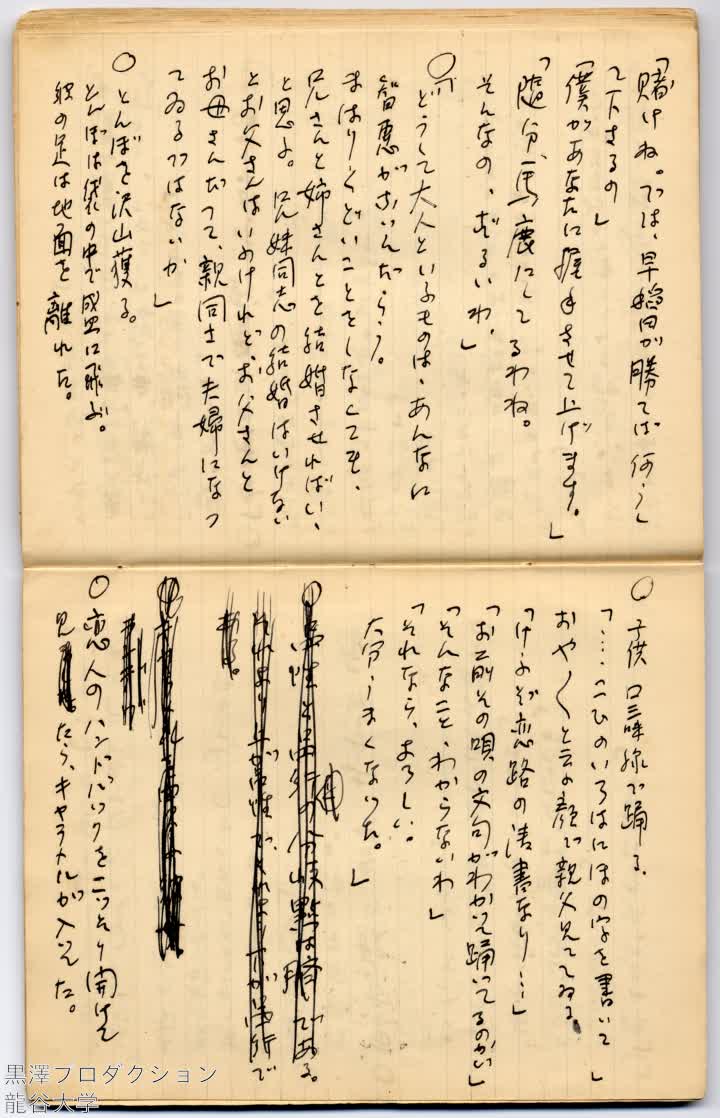 「賭けね。では、早稲田が勝てば何うし
て下さるの」
「僕があなたに握手させて上げます。」
「随分、馬鹿にしてるわね。
そんなの、ずるいわ。」
〇「どうして大人といふものは、あんなに
智恵がないんだらう。
まはりくどいことをしなくても、
兄さんと姉さんとを結婚させればいい、
と思ふよ。兄妹同志の結婚はいけない
とお父さんはいふけれど、お父さんと
お母さんだって、親同士で夫婦になつ
てゐるではないか」
〇とんぼを沢山獲る。
とんぼは袋の中で盛に飛ぶ。
奴の足は地面を離れた。
〇子供口三味線で踊る、
「……こひのいろはにほの字を書いて」
おや〳〵と云ふ顔で親父見てゐる。
「けふぞ恋路の清書なり…」
「お前その唄の文句がわかつて踊ってるのかい」
「そんなこと、わからないわ」
「それなら、よろしい。
大分うまくなつた。」
〇恋人のハンドバックをこつそり開けて
見たら、キヤラメルが入つてた。
黒澤プロダクション
龍谷大学